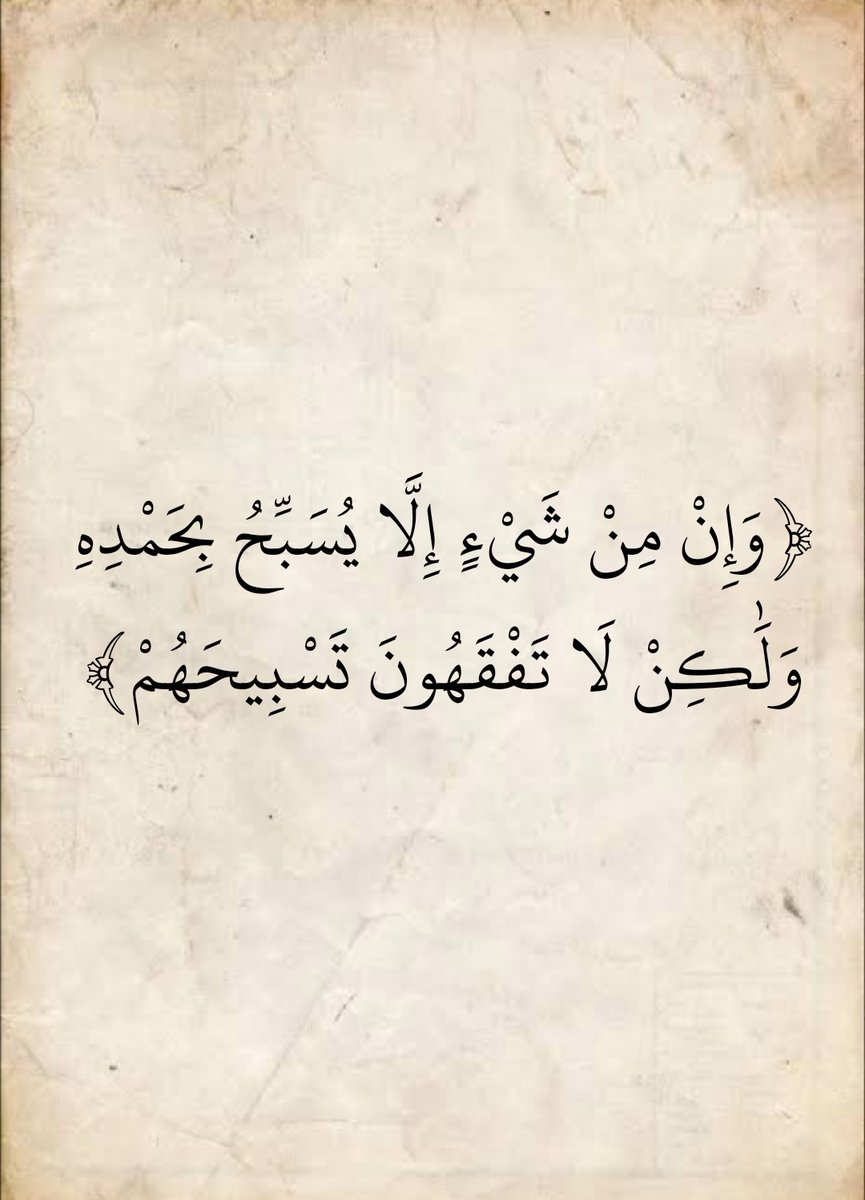 ﴿وَإِنْ مِنْ شَيْءٍ إِلَّا يُسَبِّحُ بِحَمْدِهِ
وَلَٰكِنْ لَا تَفْقَهُونَ تَسْبِيحَهُمْ﴾